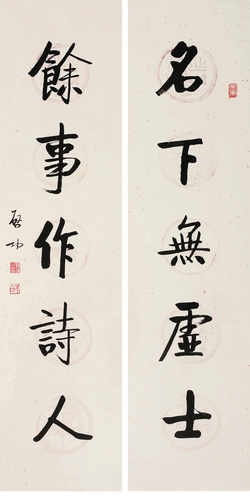 名下無虛士
餘事作詩人
啓功